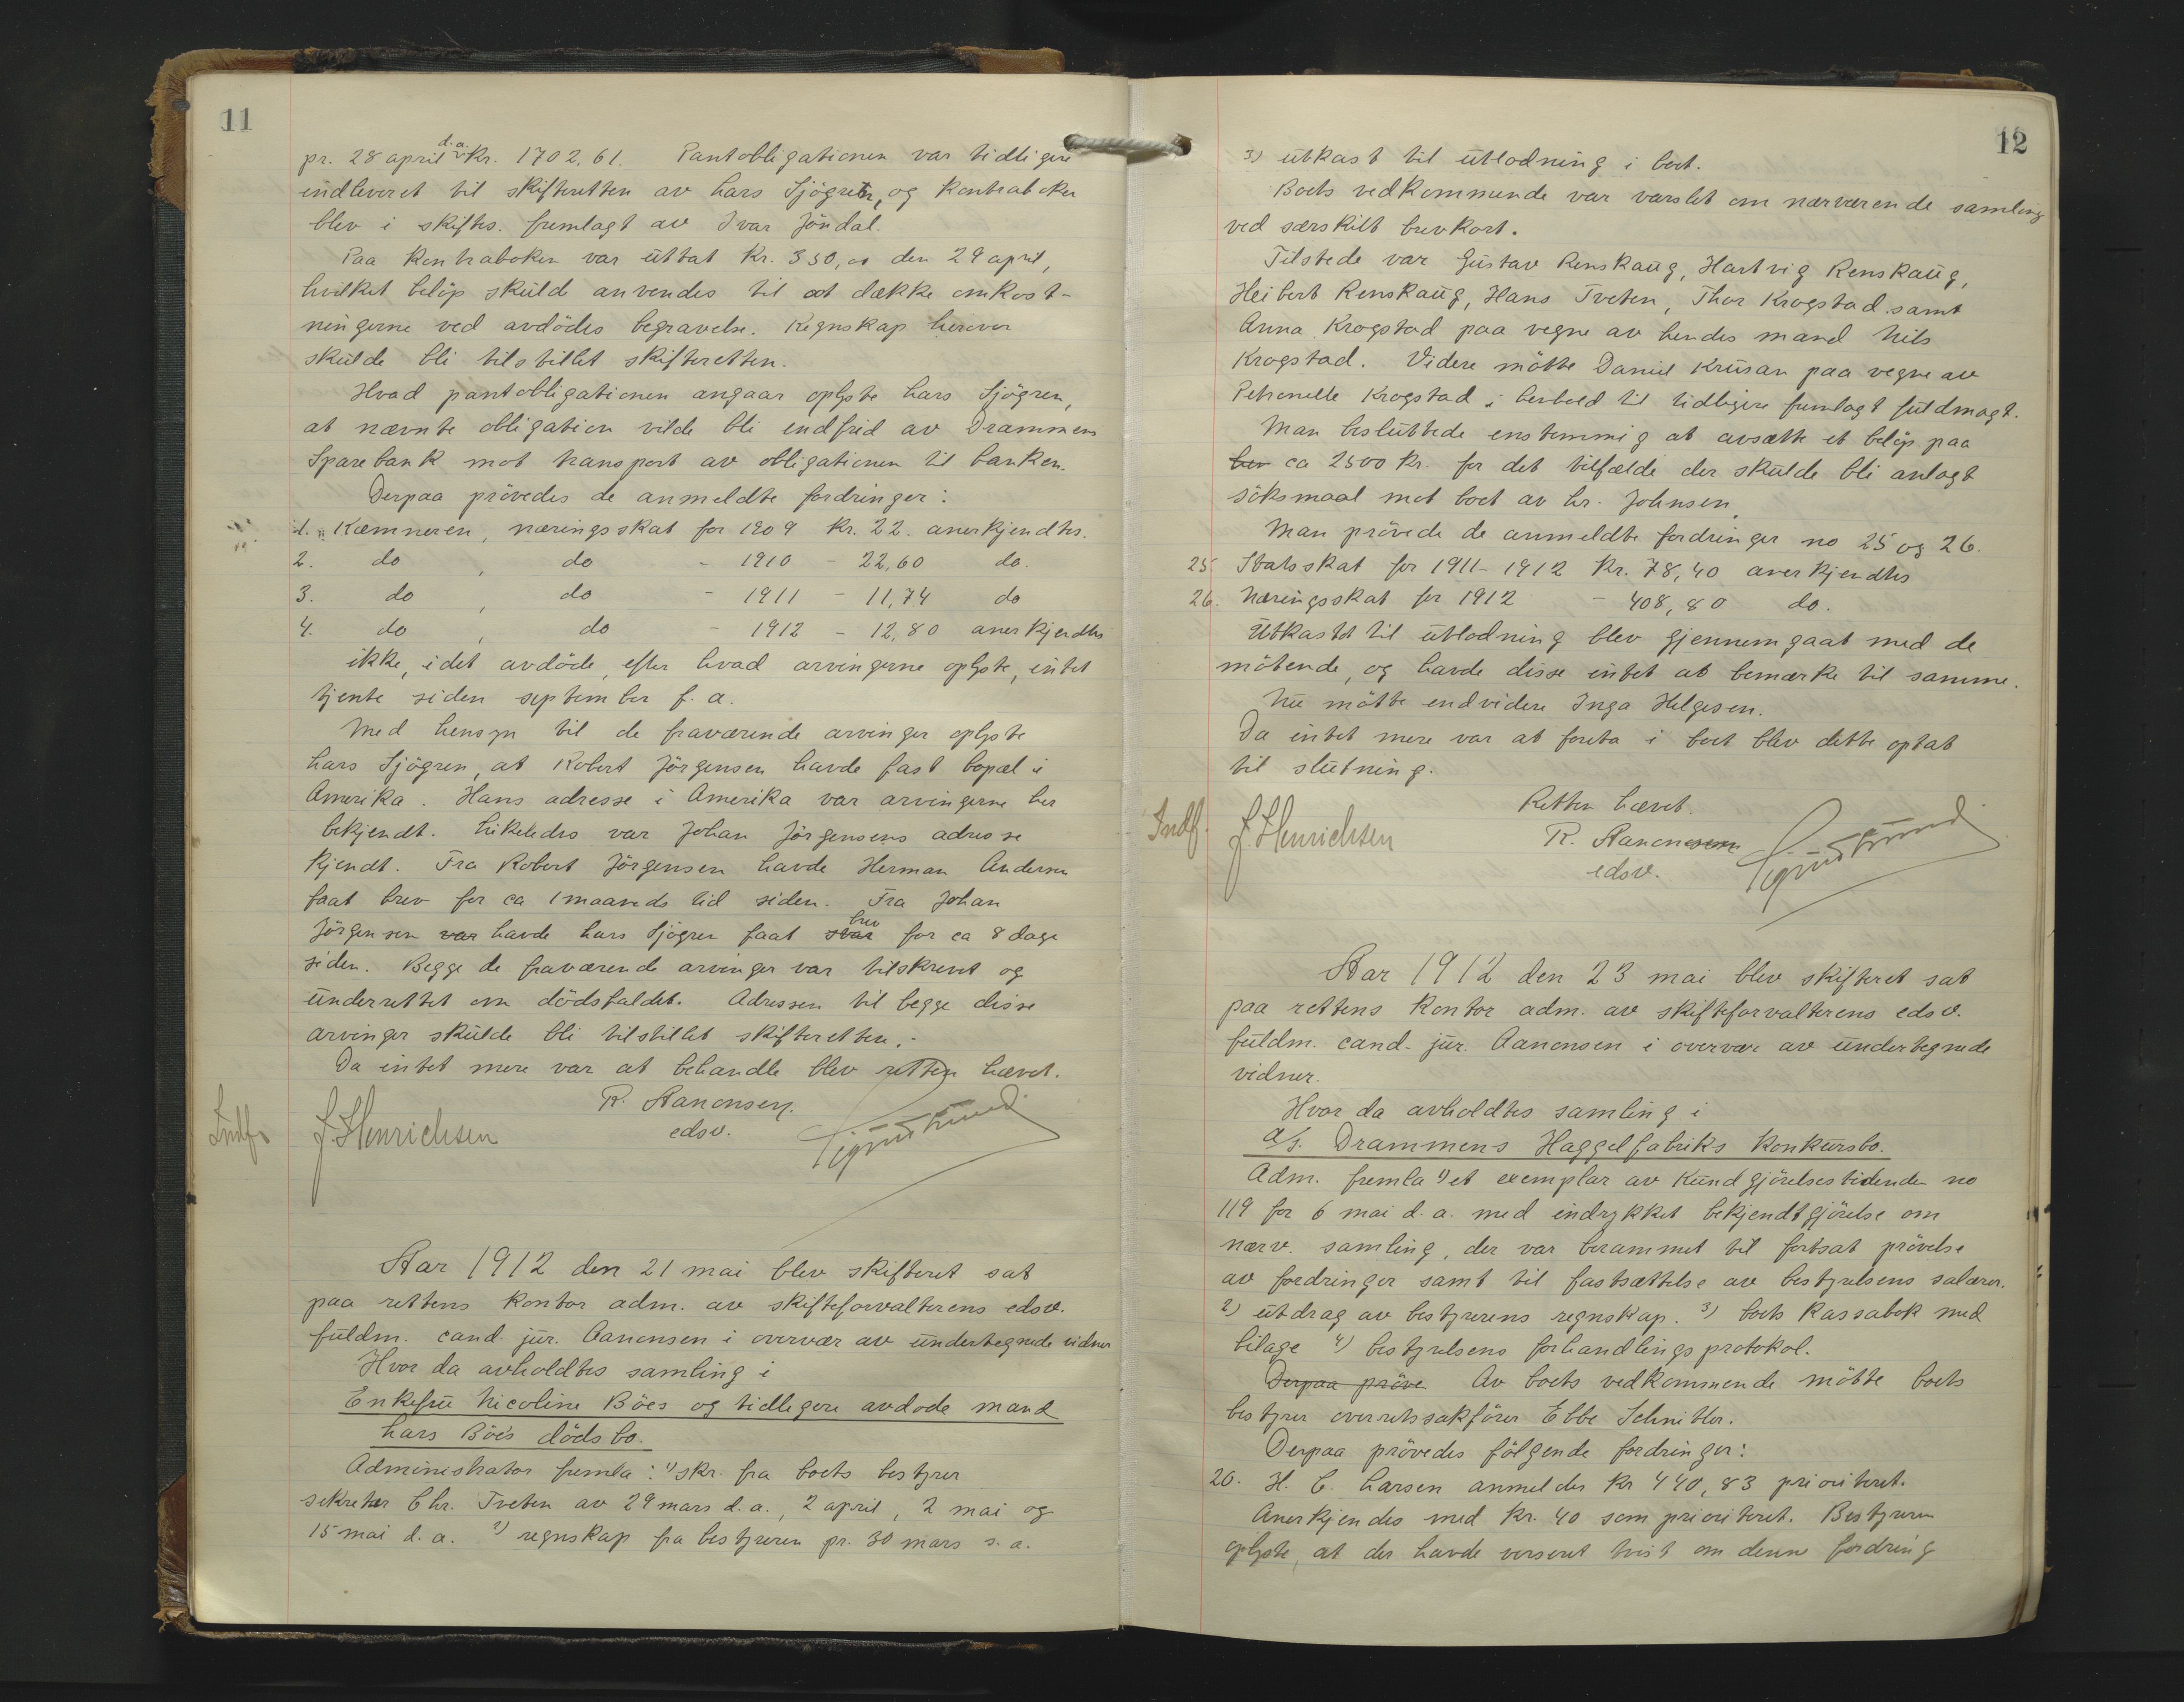 11
pr. 28 april d.a. Kr. 1702,61. Pantobligationen var tidligere
indleveret til skifteretten av Lars Sjögren, og Kontraboken
blev i skiftes. fremlagt av Ivar Jöndal.
Paa Kontraboken var uttat Kr. 350,00 den 29 april,
hvilket belöp skulde anvendes til at dække omkost-
ningerne ved avdödes begravelse. Regnskap herover
skulde bli tilstillet skifteretten.
Hvad pantobligationen angaar oplyste Lars Sjögren,
at nævnte obligation vilde bli indfrid av Drammens
Sparebank mot transport av obligationen til banken.
Derpaa prövedes de anmeldte fordringer:
1. Kæmneren, næringsskat for 1909 Kr. 22. anerkjendtes.
2. do , do - 1910 - 22,60 do.
3. do , do - 1911 - 11,74 do
4. do , do - 1912 - 12,80 anerkjendtes
ikke, idet avdöde, efter hvad arvingerne oplyste, intet
tjente siden september f.a.
Med hensyn til de fraværende arvinger oplyste
Lars Sjögren, at Robert Jörgensen havde fast bopæl i
Amerika. Hans adresse i Amerika var arvingerne her
bekjendt. Likeledes var Johan Jörgensens adresse
kjendt. Fra Robert Jörgensen havde Herman Andersen
faat brev for ca 1 maaneds tid siden. Fra Johan
Jörgensen var havde Lars Sjögren faat svar brev for ca 8 dage
siden. Begge de fraværende arvinger var tilskrevet og
underrettet om dödsfaldet. Adressen til begge disse
arvinger skulde bli tilstillet skifteretten.-
Da intet mere var at behandle blev retten hævet.
Indf. J. Henrichsen R. Aanonsen
edsv.
Aar 1912 den 21 mai blev skifteret sat
paa rettens kontor adm. av skifteforvalterens edsv.
fuldm. cand jur. Aanonsen i overvær av undertegnede vidner
Hvor da avholdtes samling i
Enkefru Nicoline Böes og tidligere avdöde mand
Lars Böes dödsbo.
Administrator fremla: 1) skr. fra boets bestyrer
sekretær Chr. Tveten av 29 mars d.a., 2 april, 2 mai og
15 mai d.a. 2) regnskap fra bestyreren pr. 30 mars s.a.
12
3) utkast til utlodning i boet.
Boets vedkommende var varslet om nærværende samling
ved særskilt brevkort.
Tilstede var Gustav Renskaug, Hartvig Renskaug,
Heibert Renskaug, Hans Tveten, Thor Krogstad samt
Anna Krogstad paa vegne av hendes mand Nils
Krogstad. Videre mötte Daniel Krusan paa vegne av
Petronelle Krogstad i henhold til tidligere fremlagt fuldmagt.
Man besluttede enstemmig at avsætte et belöp paa
ca 2500 kr. for det tilfælde der skulde bli anlagt
söksmaal mot boet av hr. Johnsen.
Man prövede de anmeldte fordringer no 25 og 26.
25. Statsskat for 1911-1912 Kr. 78,40 anerkjendtes
26. Næringsskat for 1912 - 408,80 do.
Utkastet til utlodning blev gjennemgaat med de
mötende, og havde disse intet at bemærke til samme.
Nu mötte endvidere Inga Helgesen.
Da intet mere var at foreta i boet blev dette optat
til slutning.
Retten hævet.
Indf. J. Henrichsen R. Aanonsen
edsv.
Aar 1912 den 23 mai blev skifteret sat
paa rettens kontor adm. av skifteforvalterens edsv.
fuldm. cand. jur. Aanonsen i overvær av undertegnede
vidner.
Hvor da avholdtes samling i
A/S. Drammens Haggelfabriks Konkursbo.
Adm. fremla 1) et exemplar av Kundgjörelsestidenden no
119 for 6 mai d.a. med indrykket bekjendtgjörelse om
nærv. samling, der var berammet til fortsat prövelse
av fordringer samt til fastsættelse av bestyrelsens salærer.
2) utdrag av bestyrerens regnskap. 3) boets Kassabok med
bilage 4) bestyrelsens forhandlingsprotokol.
Derpaa pröve Av boets vedkommende mötte boets
bestyrer overretssakförer Ebbe Schnitler.
Derpaa prövedes fölgende fordringer:
20. H. C. Larsen anmeldes Kr 440,83 prioriteret.
Anerkjendes med Kr. 40 som prioriteret. Bestyreren
oplyste, at der havde verseret tvist om denne fordring